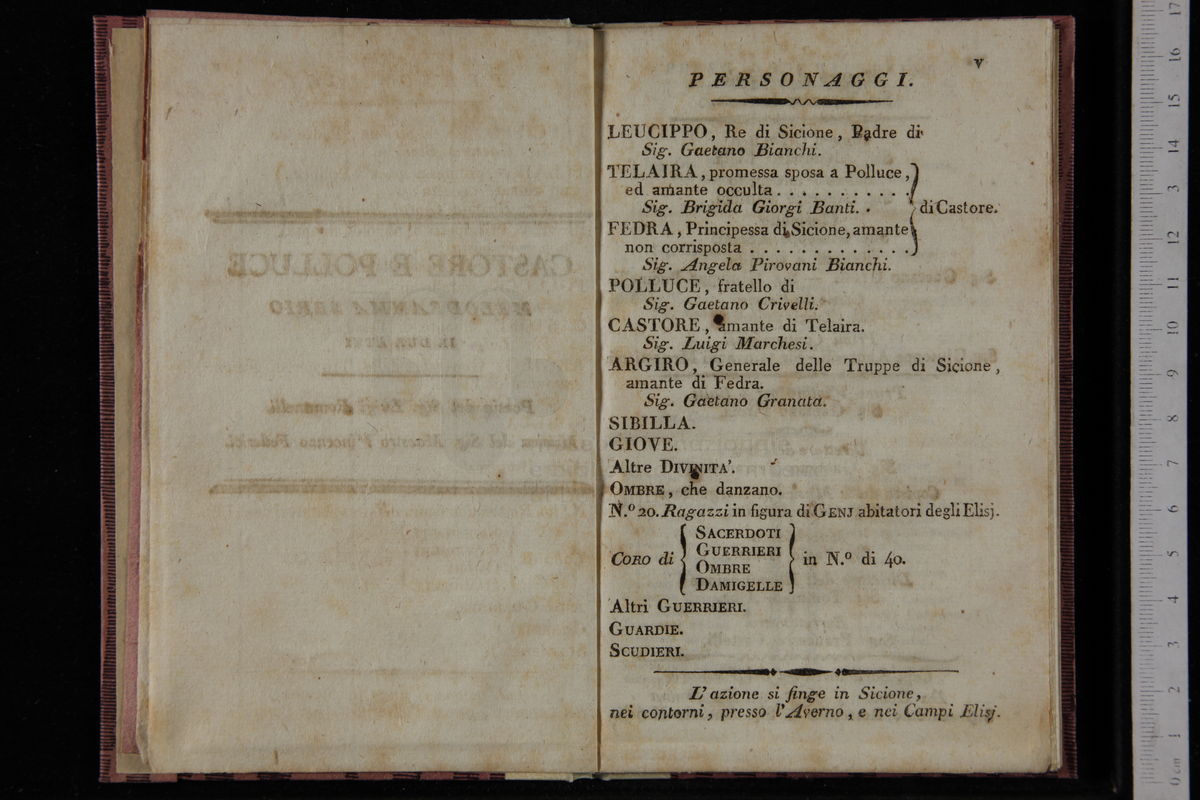 v
PERSONAGGI.
LEUCIPPO, Re di Sicione, Padre di
Sig. Gaetano Bianchi.
TELAIRA, promessa sposa a Polluce,
ed amante occulta . . . . . . . . . . .
Sig. Brigida Giorgi Banti. .
di Castore.
FEDRA, Principessa di Sicione, amante
non corrisposta . . . . . . . . . . . . .
Sig. Angela Pirovani Bianchi.
POLLUCE, fratello di
Sig. Gaetano Crivelli.
CASTORE, amante di Telaira.
Sig. Luigi Marchesi.
ARGIRO, Generale delle Truppe di Sicione,
amante di Fedra.
Sig. Gaetano Granata.
SIBILLA.
GIOVE.
Altre DIVINITA'.
OMBRE, che danzano.
N.º 20. Ragazzi in figura di GENJ abitatori degli Elisj.
CORO di { SACERDOTI
GUERRIERI
OMBRE
DAMIGELLE } in N.º di 40.
Altri GUERRIERI.
GUARDIE.
SCUDIERI.
L'azione si finge in Sicione,
nei contorni, presso l'Averno, e nei Campi Elisj.
CASTORE E POLLUCE
MELODRAMMA SERIO
IN DUE ATTI
Poesia del Sig. Luigi Romanelli.
Musica del Sig. Maestro Vincenzo Federici.
17
16
15
14
13
12
11
10
9
8
7
6
5
4
3
2
1
0 cm